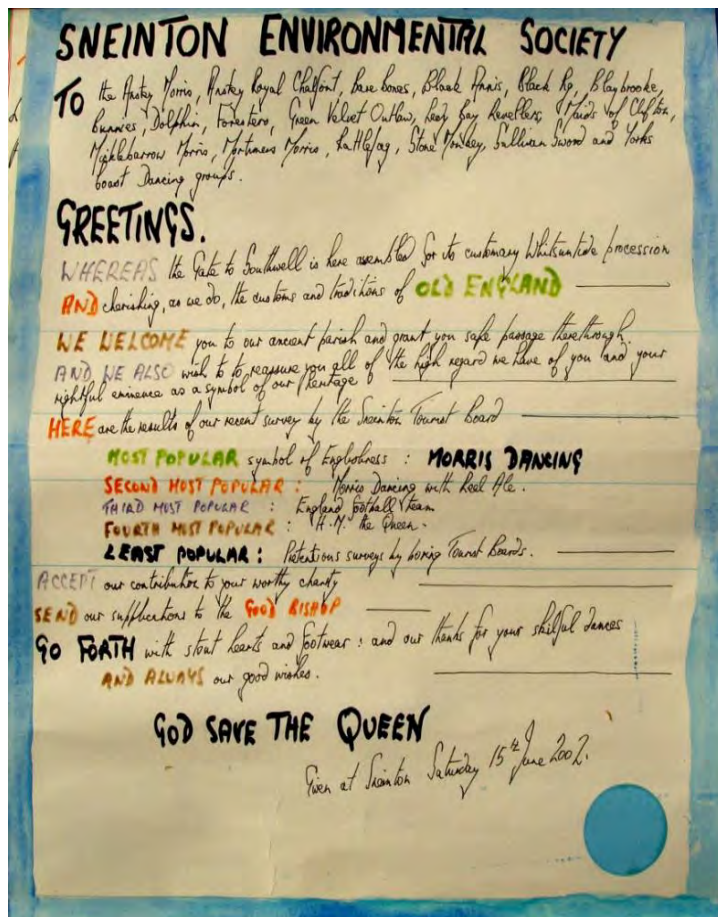 SNEINTON ENVIRONMENTAL SOCIETY
TO the Anstey Morris, Anstey Royal Chalfont, Bare Bones, Black Annis, Black Pig, Blaybrooke,
Bunnies, Dolphin, Foresters, Green Velvet Outlaw, Lead Bay Revellers, Maids of Clifton,
Micklebarrow Morris, Mortimers Morris, Rattlejag, Stone Monkey, Sullivan Sword and Yorks
boast Dancing groups.
GREETINGS.
WHEREAS the Gate to Southwell is here assembled for its customary Whitsuntide procession
AND cherishing, as we do, the customs and traditions of OLD ENGLAND
WE WELCOME you to our ancient parish and grant you safe passage therethrough.
AND WE ALSO wish to to reassure you all of the high regard we have of you and your
rightful eminence as a symbol of our heritage
HERE are the results of our recent survey by the Sneinton Tourist Board
MOST POPULAR symbol of Englishness : MORRIS DANCING
SECOND MOST POPULAR : Morris Dancing with Real Ale.
THIRD MOST POPULAR : England football team.
FOURTH MOST POPULAR : H.M. the Queen.
LEAST POPULAR : Pretentious surveys by boring Tourist Boards.
ACCEPT our contribution to your worthy charity
SEND our supplications to the GOOD BISHOP
GO FORTH with stout hearts and footwear : and our thanks for your skilful dances
AND ALWAYS our good wishes.
GOD SAVE THE QUEEN
Given at Sneinton Saturday 15th June 2002.